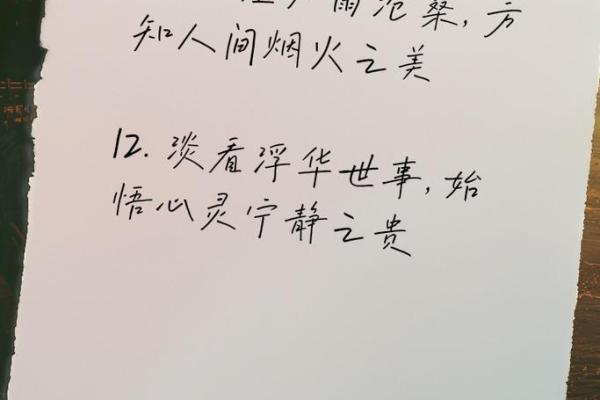 雨沧桑,方
知人间烟火之美
12.淡看浮华世事,始
悟心灵宁静之贵